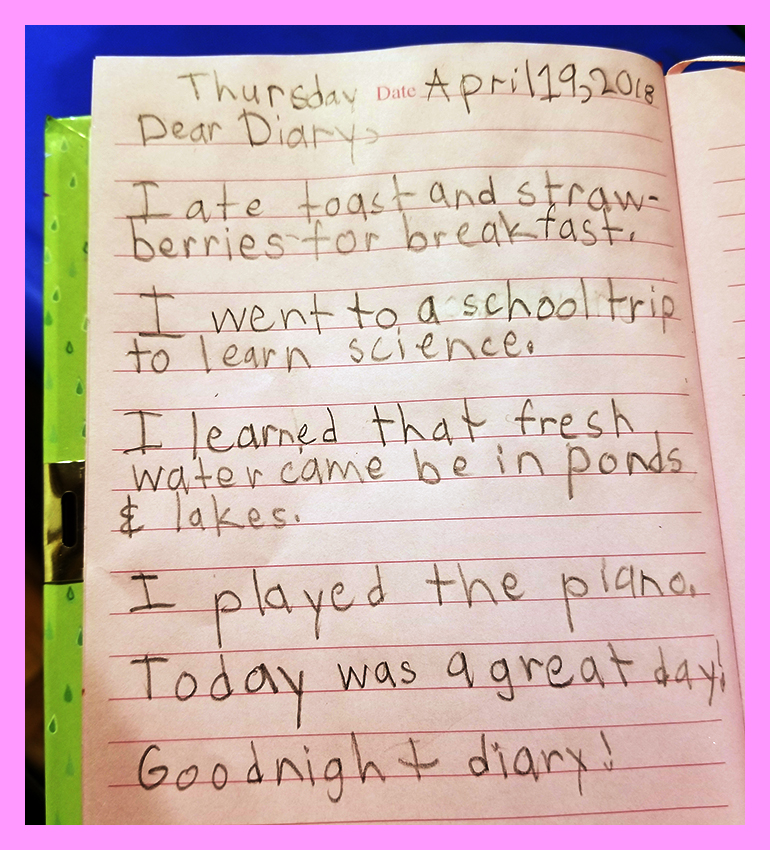 Thursday Date April 19, 2018
Dear Diary,
I ate toast and straw-
berries for breakfast.
I went to a school trip
to learn science.
I learned that fresh
water came be in ponds
& lakes.
I played the piano.
Today was a great day!
Goodnight diary!